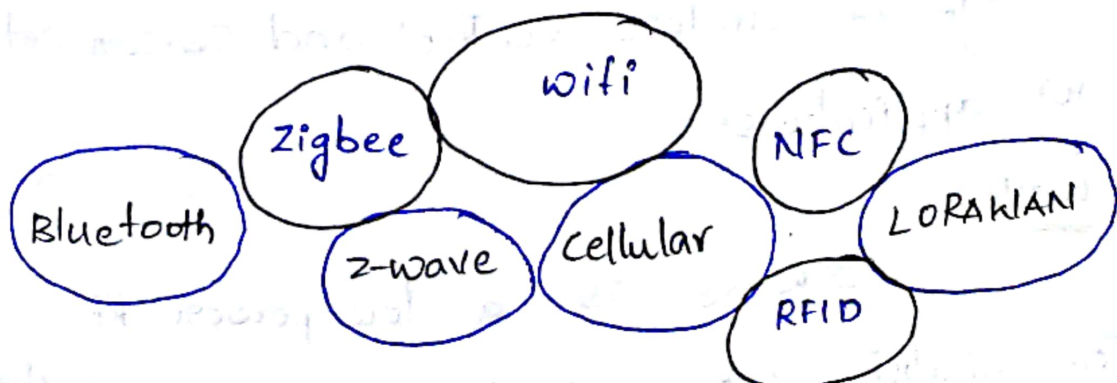 wifi
Zigbee
NFC
Bluetooth
Z-wave
Cellular
LORAWAN
RFID